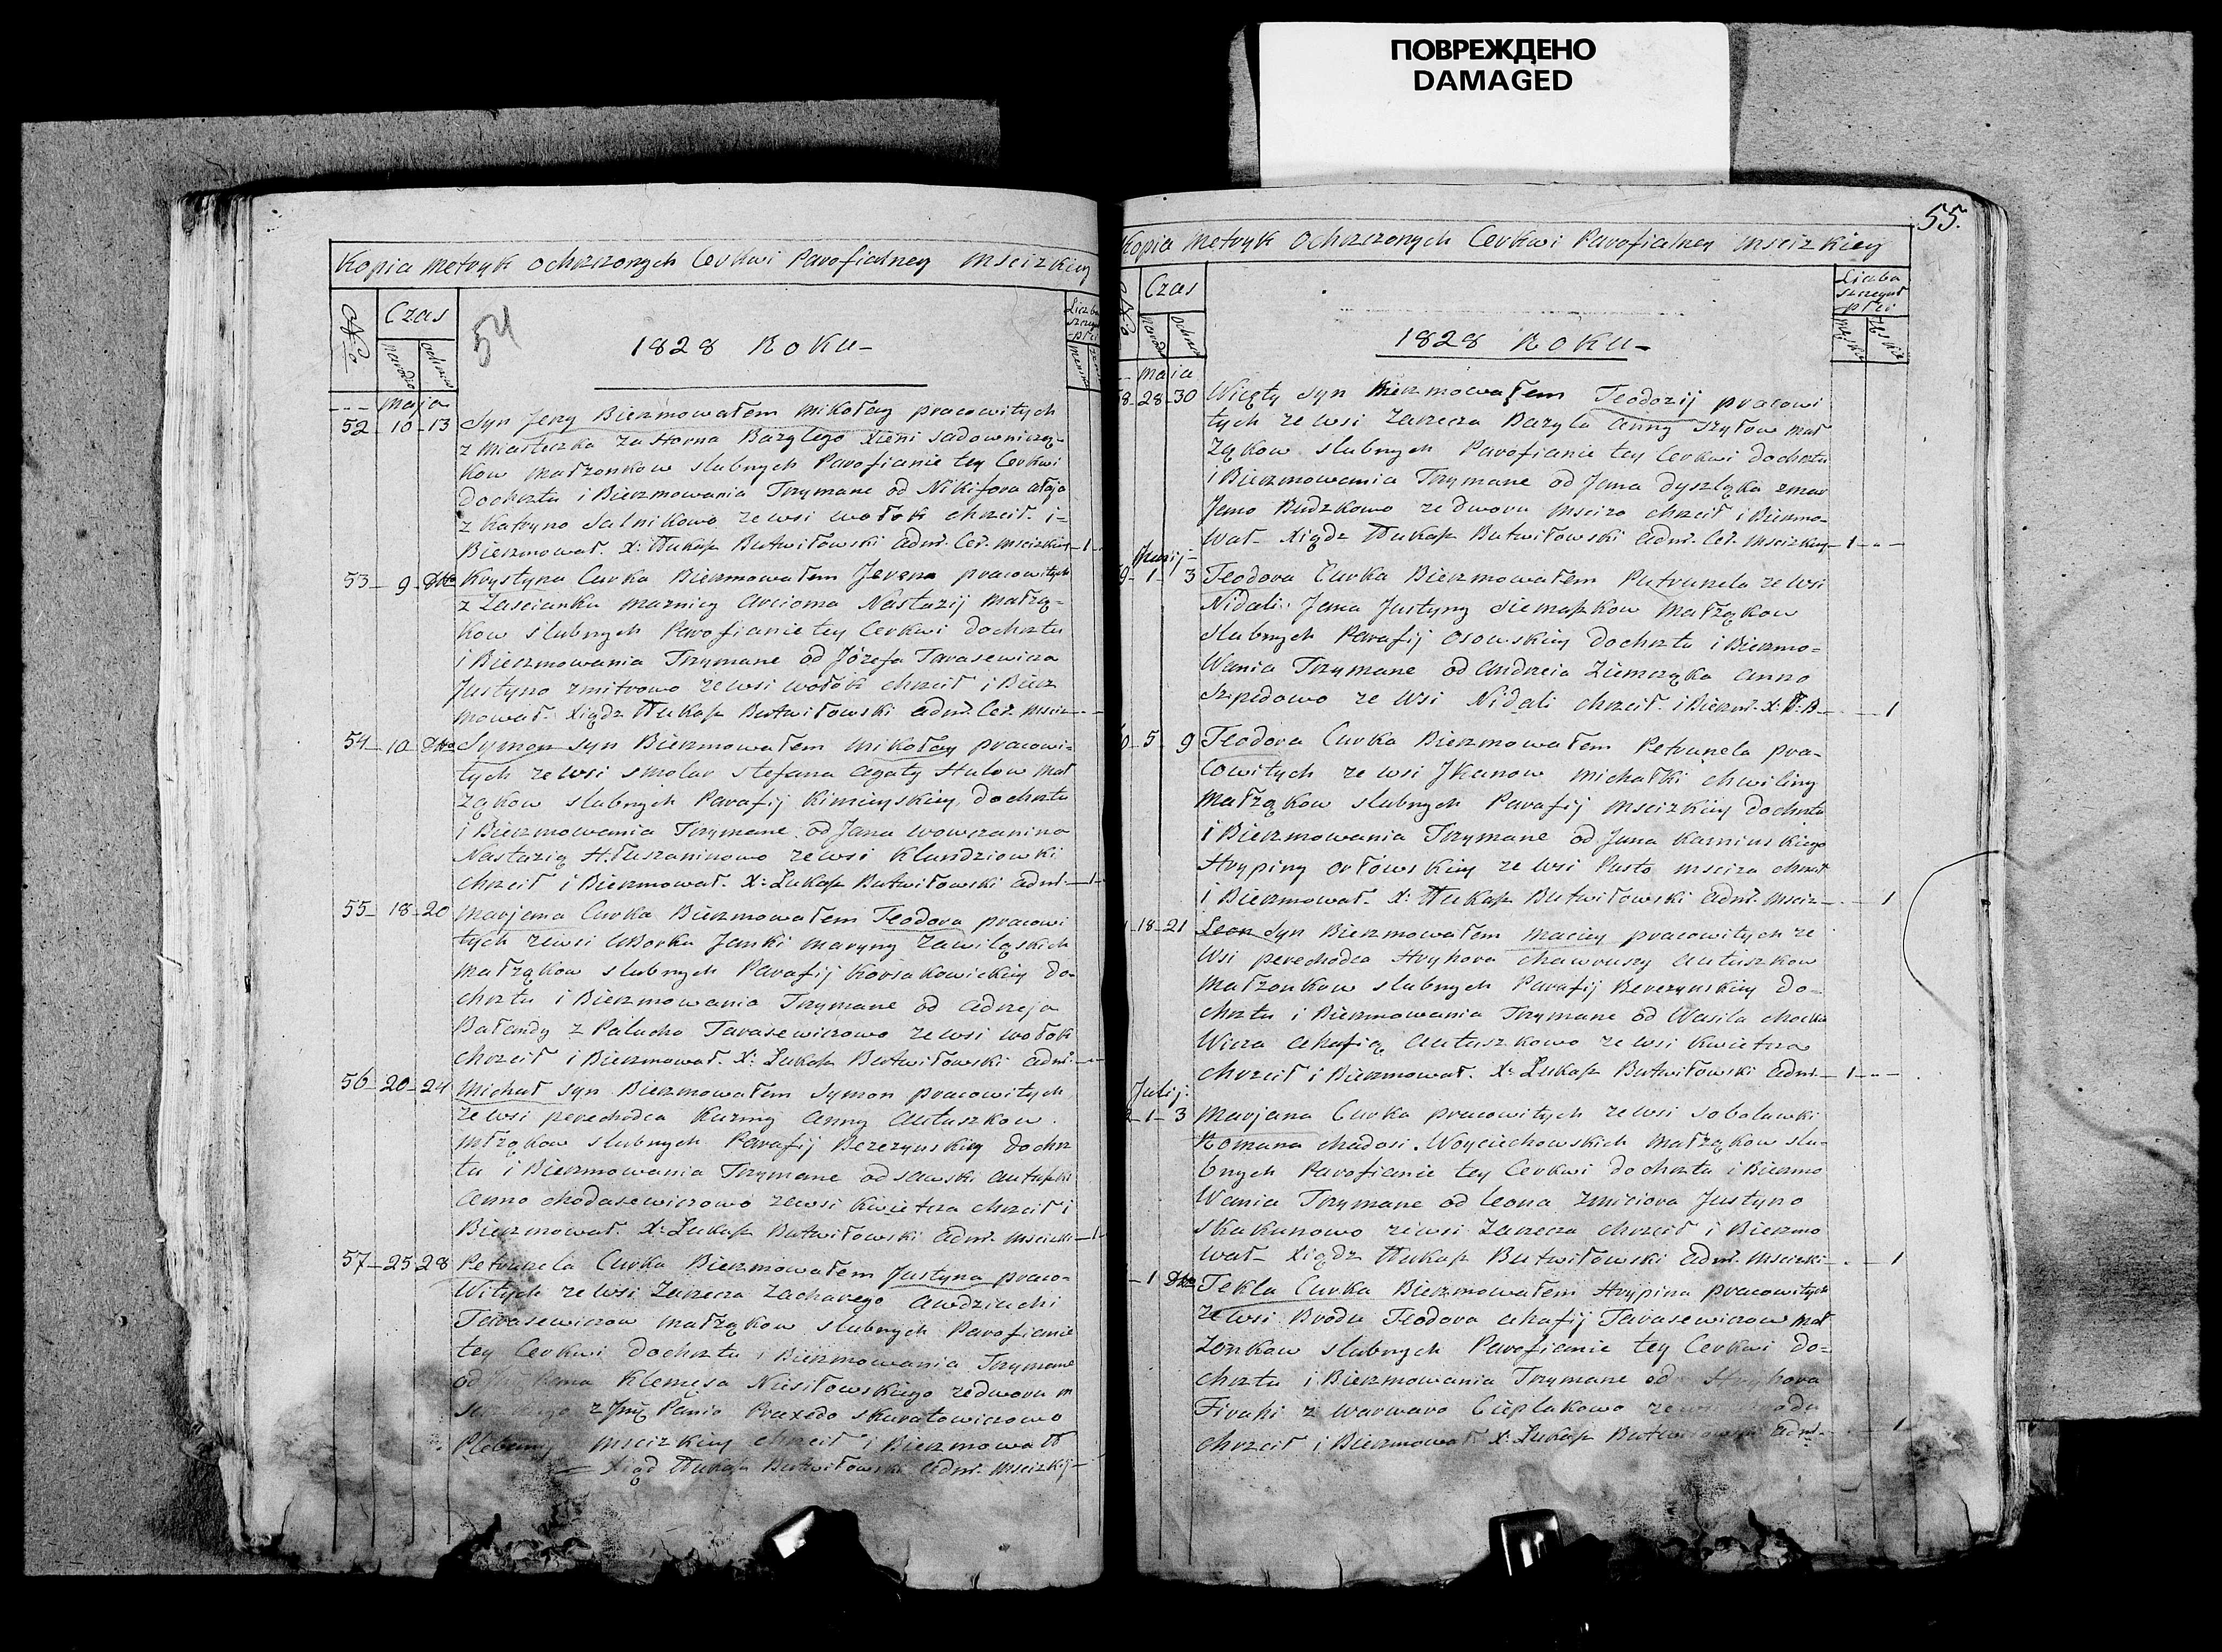 ПОВРЕЖДЕНО
DAMAGED
Kopia Metryk Ochrzczonych Cerkwi Parofialney Mscizkiey
No
Czas
narodz
ochrzcz
54
1828 Roku
Liczba
maja
52 10 13 Syn Jerzy Bierzmowałem Mikołay pracowitych
z Miasteczka Bazylego Xieni Sadowniczą-
kow małżonkow slubnych Parofianie tey Cerkwi
Dochrztu i Bierzmowania Trzymane od Nikifora
z Katryno Salnikowo ze wsi Wołok chrzcił i=
Bierzmował. X: Łukasz Butwiłowski Adm. Cer. Mscizkiey 1
53 9 Dtto Krystyna Curka Bierzmowałem pracowitych
z Zascianku Marnicy Arcioma Nastazij małżą-
kow slubnych Parofianie tey Cerkwi dochrztu
i Bierzmowania Trzymane od Józefa Tarasewicza
Justyno Zmitrowo ze wsi Wołok chrzcił i Bierz
mował. Xiądz Łukasz Butwiłowski Adm. Cer. Msciz
54 10 Dtto Symon syn Bierzmowałem Mikołay pracowi-
tych ze wsi Smolar Stefana Agaty Hulow Mał
żąkow slubnych Parafij dochrztu
i Bierzmowania Trzymane od Jana Wowczanina
Nastazią ze wsi Klundziowki
chrzcił i Bierzmował. X: Łukasz Butwiłowski Adm. 1
55 18 20 Marjana Curka Bierzmowałem Teodora pracowi
tych ze wsi Uborku Janki Maryny Zawiląskich
małżąkow slubnych Parafij Korsakowickiey do-
chrztu i Bierzmowania Trzymane od Adrzeja
Bałandy z Palucho Tarasewiczowo ze wsi Wołok
chrzcił i Bierzmował. X: Łukasz Butwiłowski Adm.
56 20 24 Michał syn Bierzmowałem Symon pracowitych
ze wsi perechodca Kuzmy Anny Autuszkow
młżąkow slubnych Parafij Berezynskiey dochrz
tu i Bierzmowania Trzymane od Sawski
Anno Chodasewiczowo ze wsi Kwietcza chrzcił i
Bierzmował. X: Łukasz Butwiłowski Adm. 1
57 25 28 Petrunela Curka Bierzmowałem Justyna praco-
witych ze wsi Zarzecza Zacharego Awdziuchi
Tarasewiczow małżąkow slubnych Parofianie
tey Cerkwi Dochrztu i Bierzmowania Trzymane
od Klemęsa Niesiłowskiego ze dworu
z Panio Praxedo Skuratowiczowo
Plebany Mscizkiey chrzcił i Bierzmował
Xiąd Łukasz Butwiłowski Adm. Mscizkij
55.
Kopia Metryk Ochrzczonych Cerkwi Parofialney Mscizkiey
Czas
Liczba
1828 Roku
maja
28 30 Więty syn Bierzmowałem Teodozij pracowi
tych ze wsi Zarzecza Bazyla Anny Szyłow mał
żąkow slubnych Parofianie tey Cerkwi dochrztu
i Bierzmowania Trzymane od Jana Dyszląka
Budzkowo ze dworu Msciza chrzcił i Bierzmo-
wał Xiądz Łukasz Butwiłowski Adm. Cer. Mscizkiey 1
Junij
1 3 Teodora Curka Bierzmowałem Patrunela ze wsi
Nidali Jana Justyny Siemaszkow małżąkow
slubnych Parafij Osowskiey dochrztu i Bierzmo=
wania Trzymane od Andrzeia Ziemcząka Anno
Szpedowo ze wsi Nidali chrzcił i Bierzm. X: Ł: B 1
5 9 Teodora Curka Bierzmowałem Petrunela pra-
cowitych ze wsi Ikanow Michałki Chwiliny
małżąkow slubnych Parafij Mscizkiey dochrztu
i Bierzmowania Trzymane od Jana
Hrypiny Orłowskiey ze wsi Pusto Msciza chrzcił
i Bierzmował X: Łukasz Butwiłowski Adm. Msciz 1
18 21 Leon syn Bierzmowałem Maciey pracowitych ze
wsi perechodca Hryhora Chawruszy Autuszkow
małżonkow slubnych Parafij Berezynskiey do-
chrztu i Bierzmowania Trzymane od Wasila
wicza Ahafią Autuszkowo ze wsi Kwietcza
chrzcił i Bierzmował. X: Łukasz Butwiłowski Adm 1
Julij:
1 3 Marjana Curka pracowitych ze wsi Sobolawki
Romana Chadosi Woyciechowskich małżąkow slu-
bnych Parofianie tey Cerkwi dochrztu i Bierzmo
wania Trzymane od Leona Zmiciora Justyno
Skakunowo ze wsi Zarzecza chrzcił i Bierzmo
wał Xiądz Łukasz Butwiłowski Adm. Mscizki 1
1 Dtto Tekla Curka Bierzmowałem Hrypina pracowitych
ze wsi Brodu Teodora Ahafij Tarasewiczow Mał
żonkow slubnych Parofianie tey Cerkwi do=
chrztu i Bierzmowania Trzymane od Hryhora
Firahi z Warwaro Cieplakowo ze wsi
chrzcił i Bierzmował X: Łukasz Butwiłowski Adm. 1